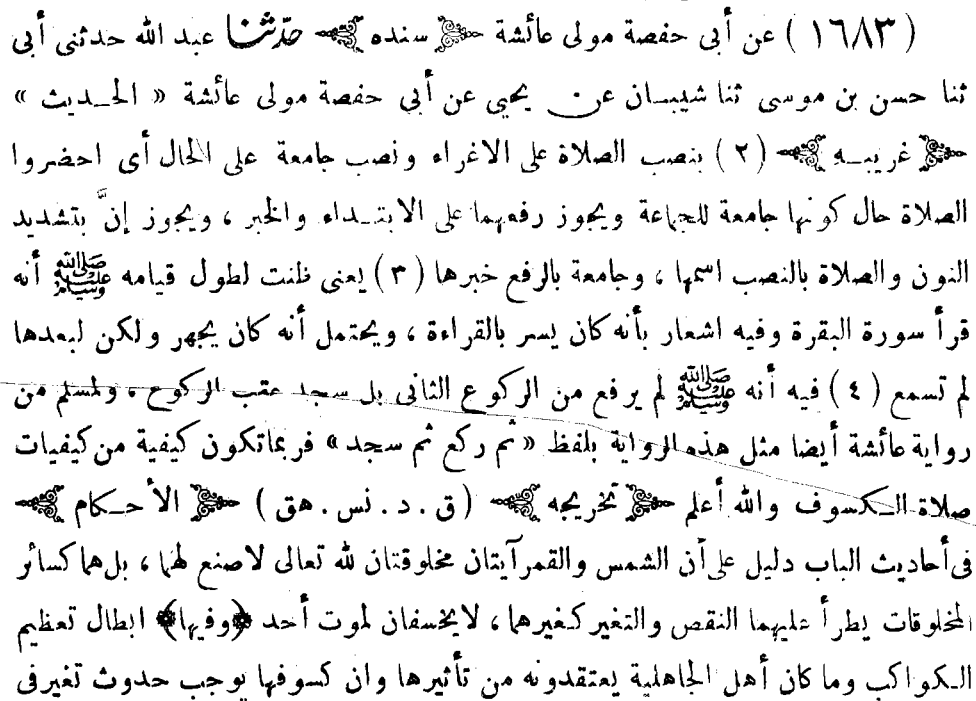 ( ١٦٨٣ ) عن أبى حفصة مولى عائشة ﴿ سنده ﴾ حدّثنا عبد الله حدثنى أبى
ثنا حسن بن موسى ثنا شيبان عن يحيى عن أبي حفصة مولى عائشة « الحديث »
﴿ غريبه ﴾ ( ٢ ) بنصب الصلاة على الاغراء ونصب جامعة على الحال أى احضروا
الصلاة حال كونها جامعة للجماعة ويجوز رفعهما على الابتداء والخبر ، ويجوز إنَّ بتشديد
النون والصلاة بالنصب اسمها ، وجامعة بالرفع خبرها ( ٣ ) يعنى ظنت لطول قيامه ﷺ أنه
قرأ سورة البقرة وفيه اشعار بأنه كان يسر بالقراءة ، ويحتمل أنه كان يجهر ولكن لبعدها
لم تسمع ( ٤ ) فيه أنه ﷺ لم يرفع من الركوع الثانى بل سجد عقب الركوع ، ولمسلم من
رواية عائشة أيضا مثل هذه الرواية بلفظ « ثم ركع ثم سجد » فربما تكون كيفية من كيفيات
صلاة الكسوف والله أعلم ﴿ تخريجه ﴾ ( ق . د . نس . هق ) ﴿ الأحكام ﴾
فى أحاديث الباب دليل على أن الشمس والقمر آيتان مخلوقتان لله تعالى لاصنع لهما ، بل هما كسائر
المخلوقات يطرأ عليهما النقص والتغير كغيرهما ، لايخسفان لموت أحد ﴿وفيها﴾ ابطال تعظيم
الكواكب وما كان أهل الجاهلية يعتقدونه من تأثيرها وان كسوفها يوجب حدوث تغير فى